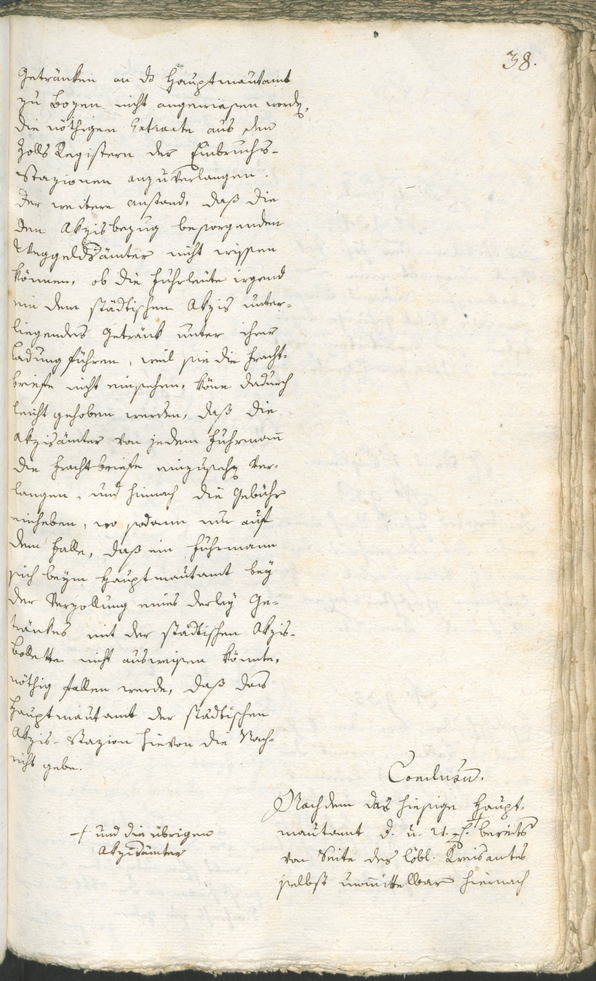 38.
Getränken an dß Hauptmautamt
zu Bozen nicht angewiesen werden,
die nöthigen Extracte aus den
Zolls Registern der Einbruchs-
Stazionen anzuverlangen.
Der weitere anstand, daß die
den Akzisbezug besorgenden
Weggeldämter nicht wissen
können, ob die Fuhrleute irgend
ein dem städtischen Akzis unter-
liegendes Getränk unter ihrer
Ladung führen, weil sie die Fracht-
briefe nicht einsehen, könne dadurch
leicht gehoben werden, daß die
Akzisämter von jedem Fuhrmann
die Frachtbriefe einzusehen ver-
langen, und hienach die Gebühr
einheben, wo sodann nur auf
dem Falle, daß ein Fuhrmann
sich beym Hauptmautamt bey
der Verzollung eines derley Ge-
tränkes mit der städtischen Akzis-
Bollette nicht ausweisen könnte,
nöthig fallen werde, daß das
Hauptmautamt der städtischen
Akzis-Stazion hievon die Nach-
richt gebe.
Conclusum.
Nachdem das hiesige Haupt-
mautamt d. u. u. +/ bereits
von Seite des löbl. Kreisamtes
selbst unmittelbar hienach
+/ und die übrigen
Akzisämter